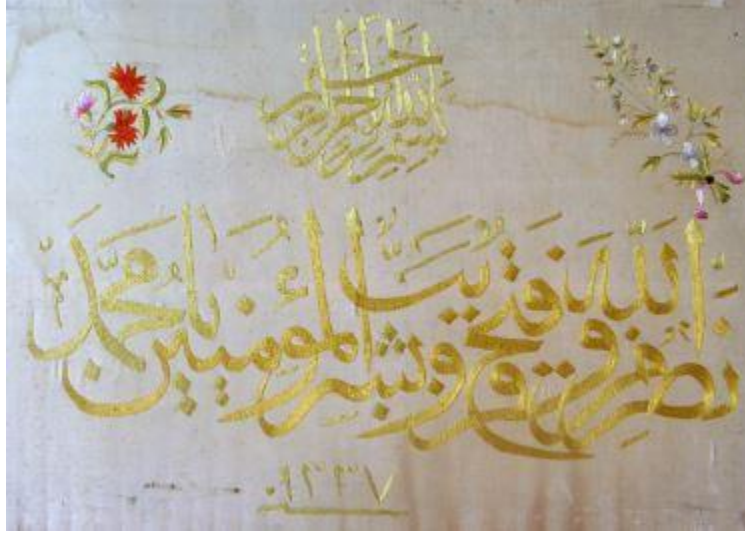 بسم الله الرحمن الرحيم
نصر من الله وفتح قريب وبشر المؤمنين يا محمد
١٣٣٧